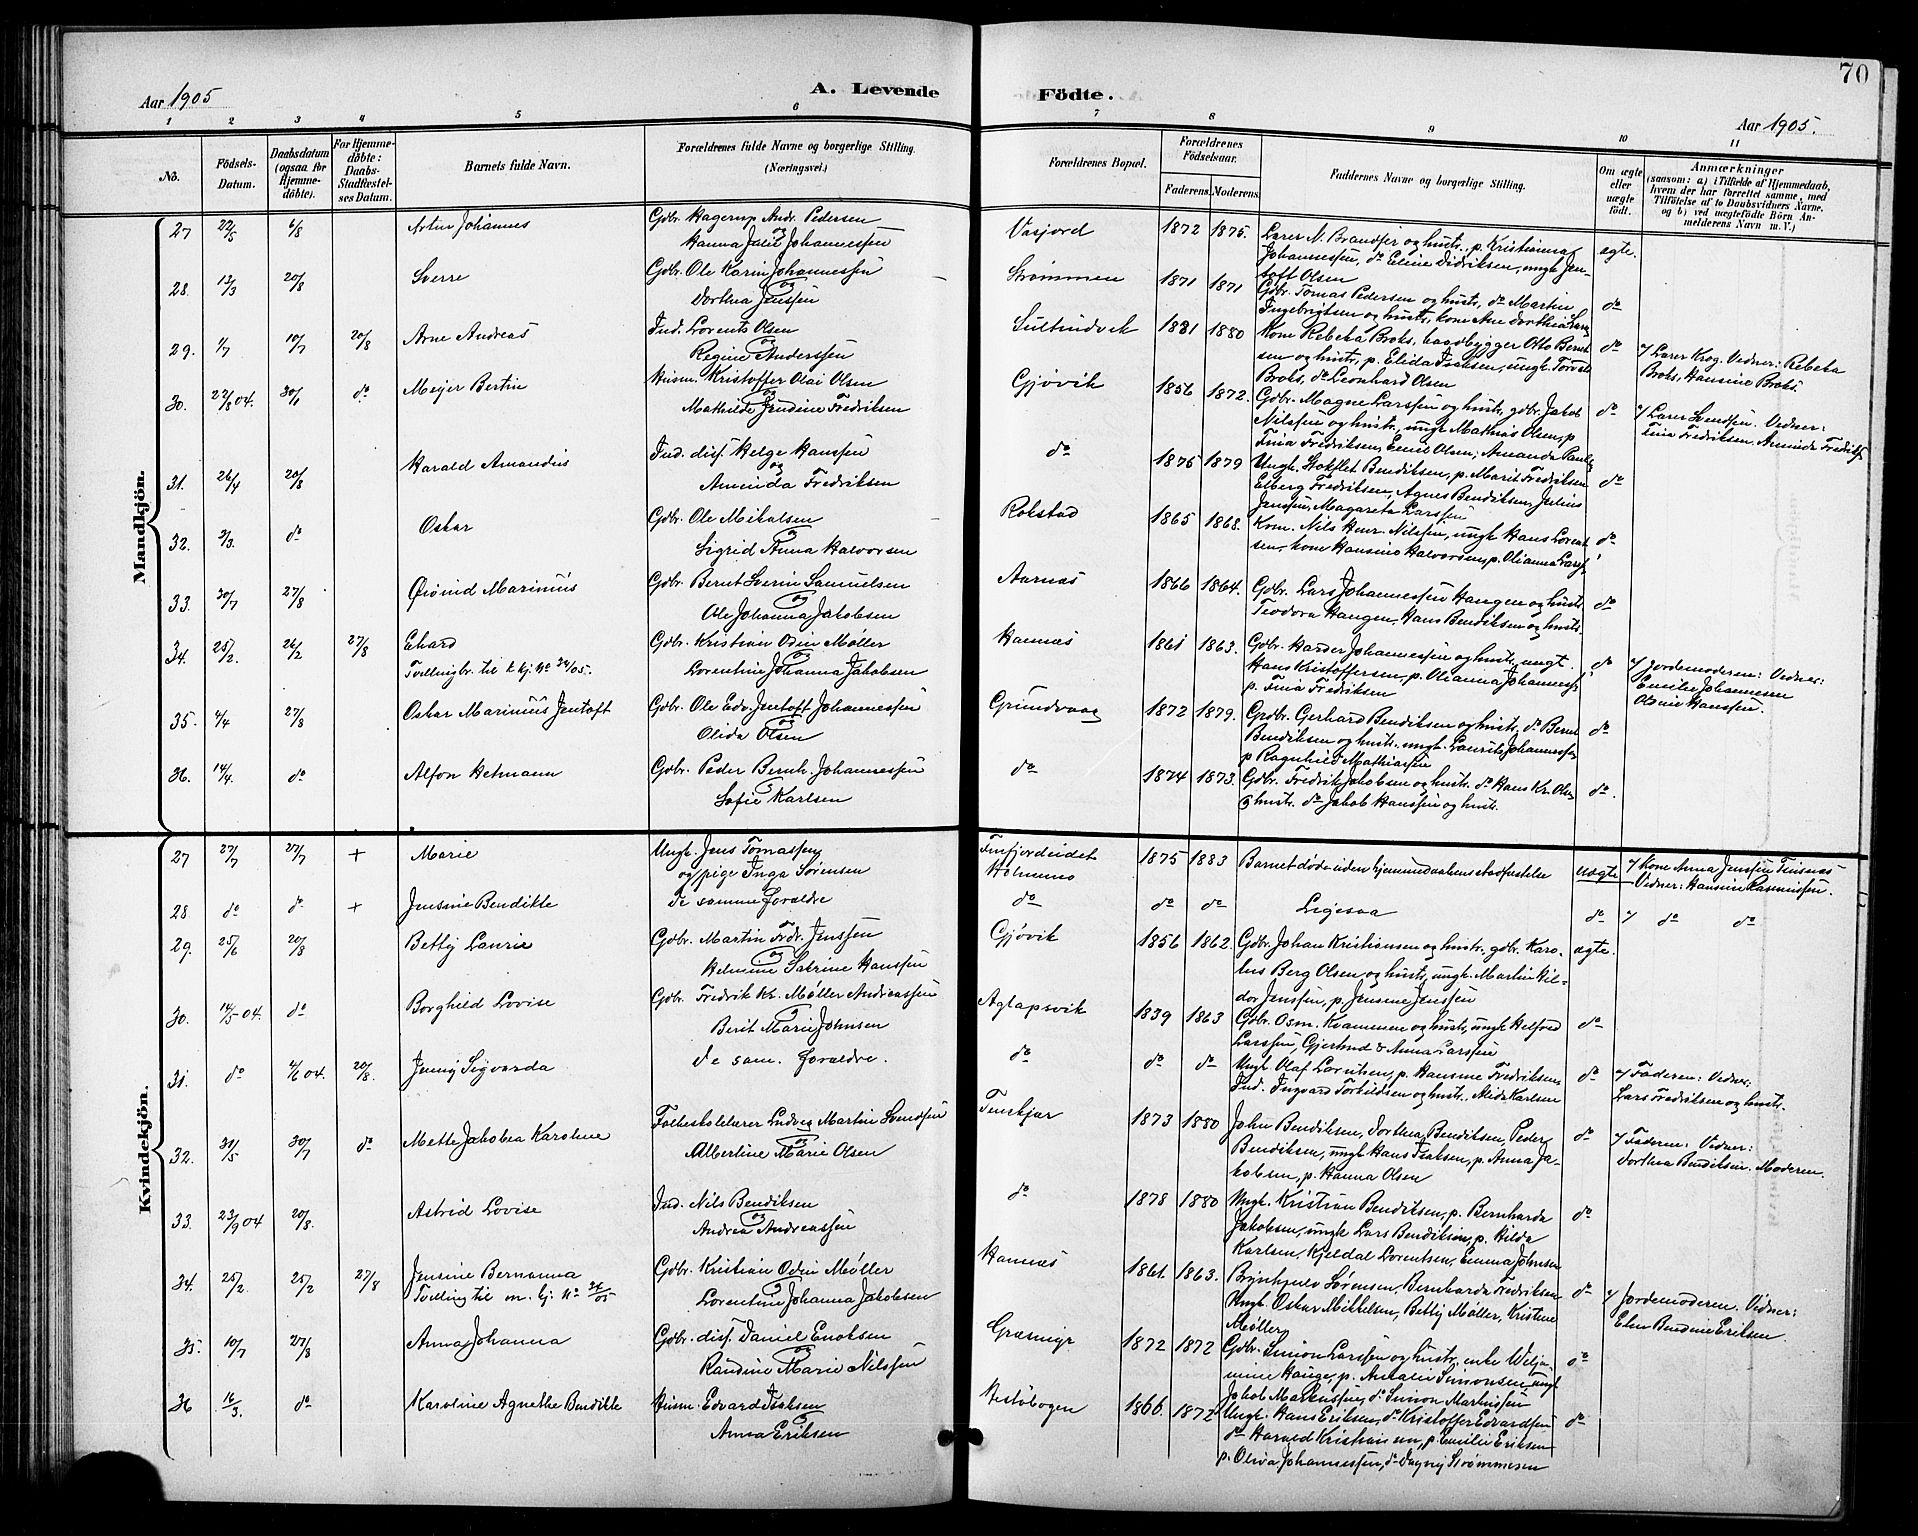 70
Aar 1905
A. Levende
Födte.
Aar 1905.
1 2 3 4 5 6 7 8 9 10 11
No.
Födsels-
Datum.
Daabsdatum
(ogsaa for
Hjemme-
döbte).
For Hjemme-
döbte:
Daabs-
Stadfæstel-
ses Datum.
Barnets fulde Navn.
Forældrenes fulde Navne og borgerlige Stilling.
(Næringsvei).
Forældrenes Bopæl.
Forældrenes
Födselsaar.
Faderens. Moderens.
Faddernes Navne og borgerlige Stilling.
Om ægte
eller
uægte
födt.
Anmærkninger
(saasom: a) i Tilfælde af Hjemmedaab,
hvem der har forrettet samme, med
Tilföielse af to Daabsvidners Navne,
og b) ved uægtefödte Börn An-
melderens Navn m. V.)
Mandkjön.
27 22/5 6/8 Artur Johannes Gdbr. Hagerup Andr. Pedersen
og
Hanna Johannessen
Vasjord 1872 1875. Lærer N. Brandser og hustr., p. Kristianna
Johannessen, do Eline Didriksen, ungk. Jen-
toft Olsen
ægte.
28. 13/3 20/8 Sverre Gdbr. Ole Karin Johannessen
og
Dorthea Jenssen
Strømmen 1871 1871 Gdbr. Tomas Pedersen og hustr., do Martin
Ingebrigtsen og hustr., kone Ane Dorthea
do
29. 1/7 10/7 20/8 Arne Andreas Ind. Lorents Olsen
og
Regine Anderssen
Sultindvik 1881 1880 Kone Rebeka Broks, baadbygger Otto Bernt-
sen og hustr., p. Elida Isaksen, ungk. Torvald
Broks, do Leonhard Olsen
do
v/ Lærer Krog. Vidner: Rebeka
Broks, Hansine Broks.
30. 22/8 04. 30/1 do Meyer Bertin Husm. Kristoffer Olai Olsen
og
Mathilde Jendine Fredriksen
Gjøvik 1856 1872. Gdbr. Magne Larssen og hustr., gdbr. Jakob
Nilssen og hustr., ungk. Mathias Olsen, p.
Tina Fredriksen, Emil Olsen, Amanda
do
v/ Lærer Svendsen. Vidner:
Tina Fredriksen, Aminda Fredriks.
31. 26/4 20/8 Harald Amandus Ind. diss. Helge Hanssen
og
Aminda Fredriksen
do 1875 1879 Ungk. Stokflet Bendiksen, p. Marit Fredriksen
Elberg Fredriksen, Agnes Bendiksen, Julius
Jenssen, Magareta Larssen
do
32. 3/3. do Oskar Gdbr. Ole Mikalsen
og
Sigrid Anna Halvorsen
Rokstad 1865 1868. Kom. Nils Henr. Nilssen, ungk. Hans Lorent-
sen, kone Hansine Halvorsen, p. Olianna Larss.
do
33. 30/7 27/8 Øivind Marinius Gdbr. Bernt Sverin Samuelsen
og
Ole Johanna Jakobsen
Aarnæs 1866 1864. Gdbr. Lars Johannessen Haugen og hustr.
Teodora Haugen, Hans Bendiksen og hustr.
do
34. 25/2. 26/2 27/8 Ehard
Tvillingbr. til k. kj. No 34/05.
Gdbr. Kristian Odin Møller
og
Lorentine Johanna Jakobsen
Hannæs 1861 1863. Gdbr. Harder Johannessen og hustr., ungk.
Hans Kristoffersen, p. Olianna Johanness.
p. Tina Fredriksen
do
v/ Jordemoderen: Vidner:
Emilie Johannesen
Oline Hanssen.
35. 4/4 27/8 Oskar Marinius Jentoft Gdbr. Ole Edv. Jentoft Johannessen
og
Olida Olsen
Grundvaag 1872 1879. Gdbr. Gerhard Bendiksen og hustr., do Bernt
Bendiksen og hustr., ungk. Laurits Johannessen
p. Ragnhild Mathiassen
do
36. 14/4. do Alfon Hetmann Gdbr. Peder Bernh. Johannessen
og
Sofie Karlsen
do 1874 1873. Gdbr. Fredrik Jakobsen og hustr. do Hans Kr. Olsen
og hustr. do Jakob Hanssen og hustr.
do.
Kvindekjön.
27 27/7 27/7 + Marie Ungk. Jens Tomassen
og pige Inga Sørensen
Finfjordeidet
Holmmo
1875 1883 Barnet døde uden hjemmedaabens stadfæstelse uægte
v/ Kone Anna Jenssen Finsnæs
Vidner: Hansine Rasmussen.
28 do do + Jensine Bendikte De samme forældre do do do Ligesaa do v/ do do
29. 25/6 20/8 Betty Laurie Gdbr. Martin Fedr. Jenssen
og
Helmine Sabrine Hanssen
Gjøvik 1856 1862. Gdbr. Johan Kristiansen og hustr., gdbr. Karo-
lus Berg Olsen og hustr., ungk. Martin Hil-
dor Jenssen, p. Jensine Jenssen
ægte.
30. 14/5 04. do Borghild Lovise Gdbr. Fredrik Kr. Møller Andreassen
og
Berit Marie Johnsen
Aglapsvik 1839 1863 Gdbr. Osm. Kvammen og hustr., ungk. Helfred
Larssen, Gjertrud & Anna Larssen
do
31. do 4/6 04. 20/8. Jenny Sigvarda de sam. forældre. do do do Ungk. Olaf Lorentsen, p. Hansine Fredriksen,
Ind. Ingvard Torkildsen og hustr. Alida Karlsen
do
v/ Faderen: Vidner:
Lars Fredriksen og hustr.
32. 31/5 30/7 do Mette Jakobea Karoline Folkeskolelærer Ludvig Martin Svendsen
og
Albertine Marie Olsen
Finskjær 1873 1880 John Bendiksen, Dorthea Bendiksen, Peder
Bendiksen, ungk. Hans Isaksen, p. Anna Ja-
kobsen, p. Hanna Olsen
do
v/ Faderen: Vidner:
Dorthea Bendiksen, Moderen.
33. 23/9 04 20/8. Astrid Lovise Ind. Nils Bendiksen
og
Andrea Andreassen
do 1878 1880 Ungk. Kristian Bendiksen, p. Bernharda
Jakobsen, ungk. Lars Bendiksen, p. Hilda
Karlsen, Kjeldal Lorentsen, Emma Johnsen
do
34. 25/2. 25/2 27/8 Jensine Bernanna
Tvilling til m. kj. No 34/05
Gdbr. Kristian Odin Møller
og
Lorentine Johanna Jakobsen
Hannæs 1861. 1863. Brynhjulv Sørensen, Bernharda Fredriksen
Ungk. Oskar Mikkelsen, Betty Møller, Kristine
Møller
do
v/ Jordemoderen. Vidner:
Elen Berdine Eriksen.
35. 10/7 27/8 Anna Johanna Gdbr. diss. Daniel Enoksen
og
Randine Marie Nilssen
Græsmyr 1872 1872 Gdbr. Simon Larssen og hustr. enke Welja-
mine Hauge, p. Amalie Simonsen, ungk.
Jakob Markussen, do Simon Martinssen
do
36 16/3. do Karoline Agnethe Bendikte Husm. Edvard Isaksen
og
Anna Eriksen
Hestøbogen 1866. 1872 Ungk. Hans Eriksen, do Kristoffer Edvardsen
do Harald Kristiansen, p. Emilie Eriksen
p. Oliva Johannessen, do Dagny Strømmesen
do